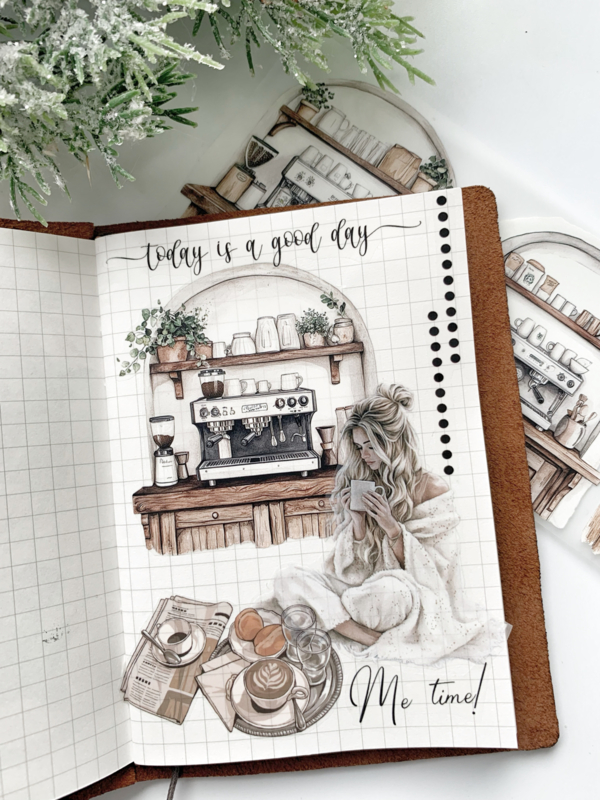 today is a good day
Me time!